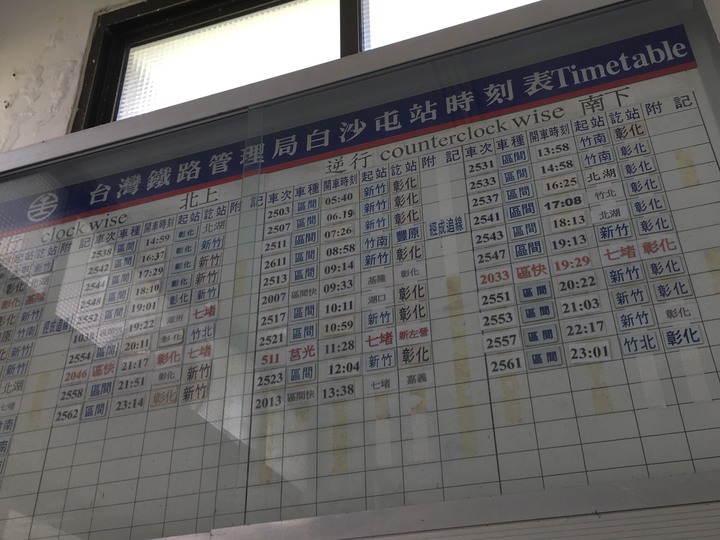 台灣鐵路管理局白沙屯站時刻表Timetable
clockwise 北上
逆行 counterclockwise 南下
附記 車次 車種 開車時刻 起站 訖站 附記
2538 區間 14:59 彰化 北湖
2542 區間 16:37 彰化 新竹
2544 區間 17:29 彰化 新竹
2548 區間 18:10 彰化 新竹
經成追線 2552 區間 19:01
19:22 七堵
2554 區間 20:11 竹北
2046 區快 21:17 彰化 七堵
2558 區間 21:51 彰化 新竹
2562 區間 23:14 彰化 新竹
車次 車種 開車時刻 起站 訖站 附記
2503 區間 05:40 新竹 彰化
2507 區間 06:19 新竹 彰化
2511 區間 07:26 竹南 豐原 經成追線
2611 區間 08:58 新竹 彰化
2513 區間 09:14 基隆 彰化
2007 區間快 09:33 湖口 彰化
2517 區間 10:11 新竹 彰化
2521 區間 10:59 七堵 新左營
511 莒光 11:28 新竹 彰化
2523 區間 12:04 七堵 嘉義
2013 區間快 13:38
車次 車種 開車時刻 起站 訖站 附記
2531 區間 13:58 竹南 彰化
2533 區間 14:58 竹南 彰化
2537 區間 16:25 北湖 彰化
2541 區間 17:08 竹北 彰化
2543 區間 18:13 北湖 彰化
2547 區間 19:13 新竹 彰化
2033 區快 19:29 七堵 彰化
2551 區間 20:22 新竹 彰化
2553 區間 21:03 新竹 彰化
2557 區間 22:17 新竹 彰化
2561 區間 23:01 竹北 彰化